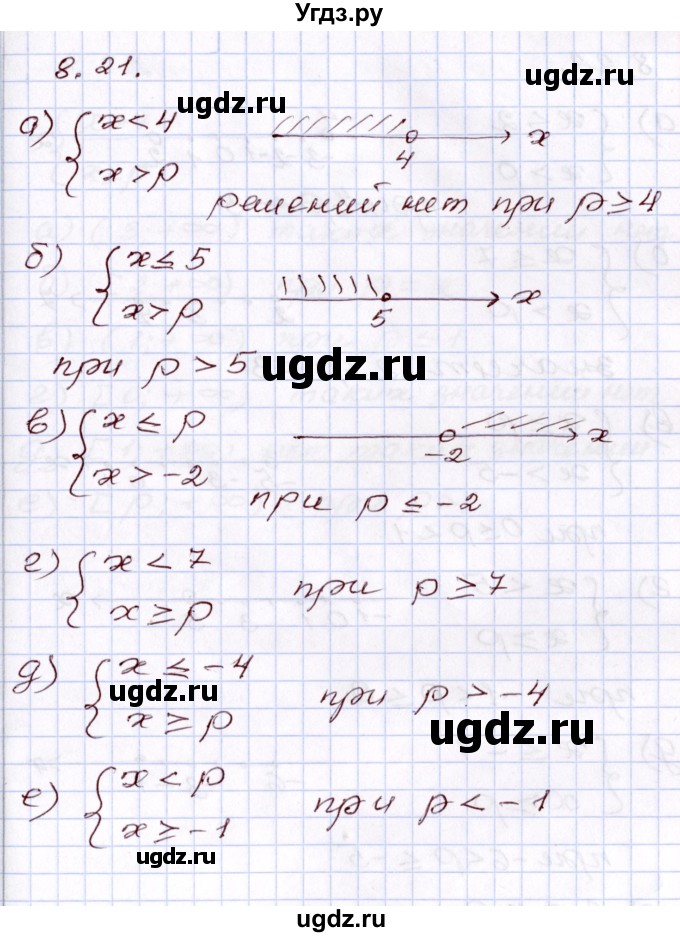 Угдз.ру
8.21.
ugdz.ru ugdz.ru
а) { x < 4
x > p
4 x
решений нет при p ≥ 4
б) { x ≤ 5
x > p
5 x
при p > 5 ugdz.ru
в) { x ≤ p
x > -2
-2 x
при p ≤ -2
г) { x < 7
x ≥ p
при p ≥ 7
д) { x ≤ -4
x ≥ p
при p > -4
ugdz.ru
ugdz.ru
е) { x < p
x ≥ -1
при p < -1
ugdz.ru
ugdz.ru